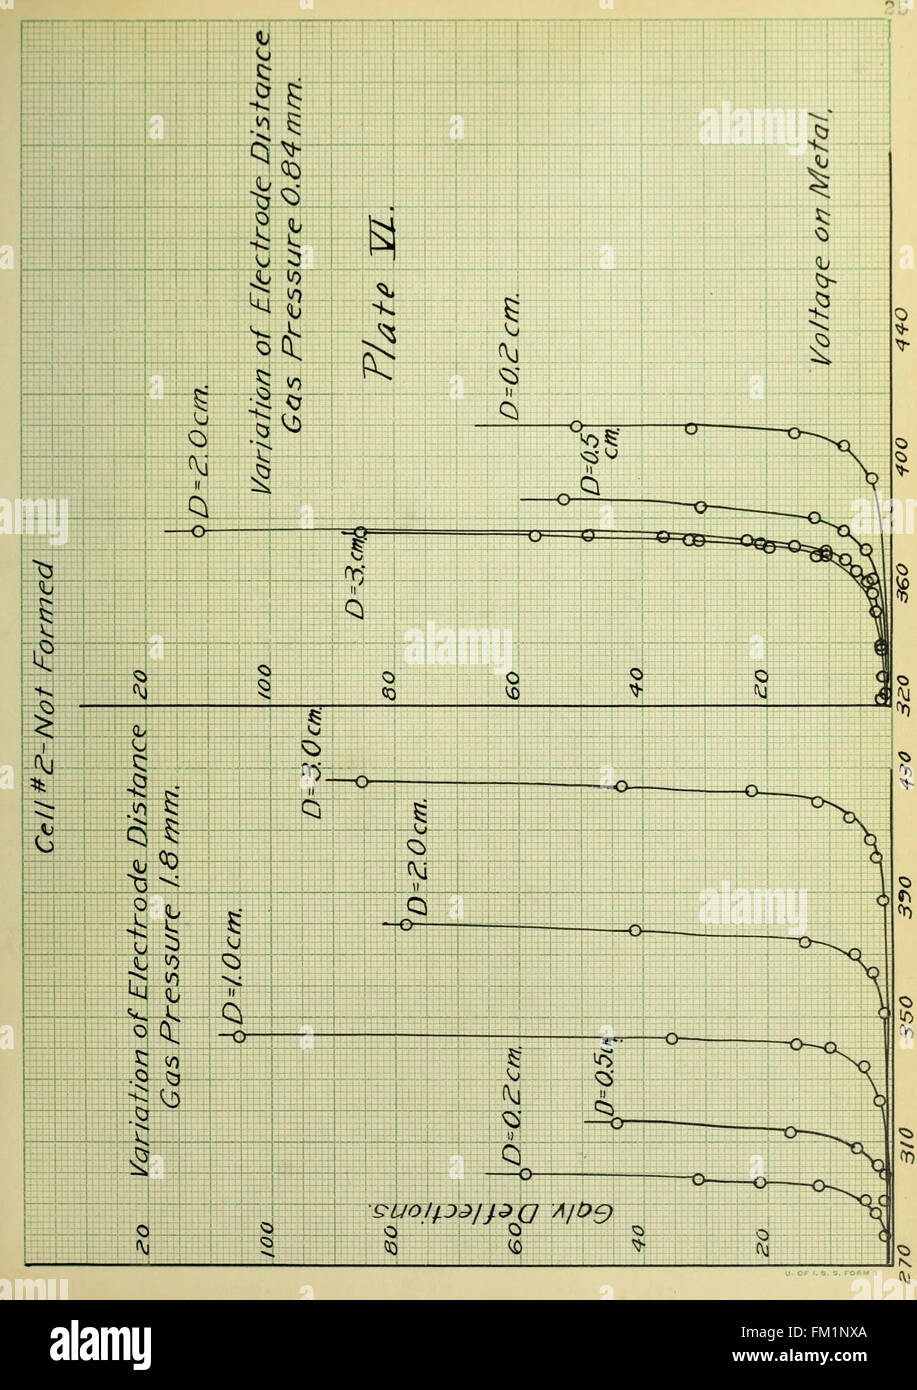 Cell #2-Not Formed
Variation of Electrode Distance
Gas Pressure 1.8 mm.
Variation of Electrode Distance
Gas Pressure 0.84 mm.
Plate VI.
D=0.2 cm.
D=1.0 cm.
D=2.0 cm.
D=3.0 cm.
D=3. cm.
D=2.0 cm.
D=0.5
cm.
D=0.2 cm.
Galv. Deflections.
20
100
80
60
40
20
20
100
80
60
40
20
270
310
350
390
430
320
360
400
440
Voltage on Metal.
U. OF I. S. S. FORM 3
alamy
alamy
alamy
alamy
a
a
a
a
a
a
alamy
Image ID: FM1NXA
www.alamy.com